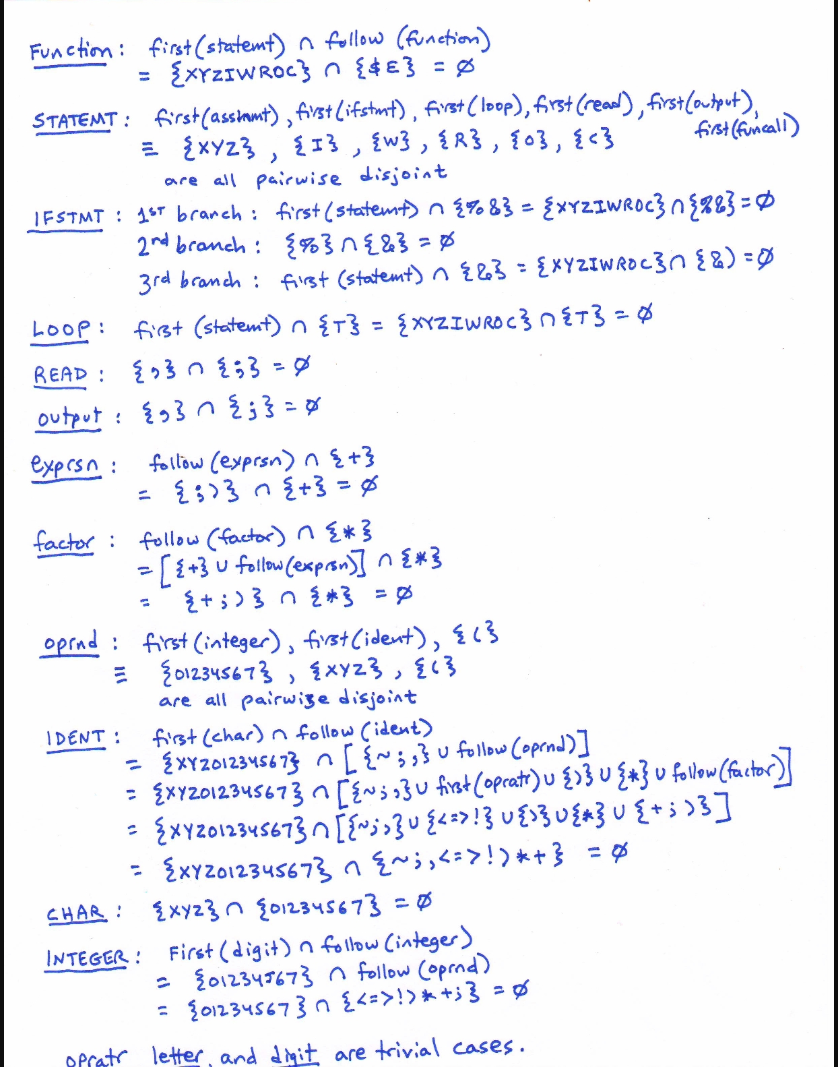 Function: first(statemt) ∩ follow (function)
= {XYZIWROC} ∩ {$E} = Ø
STATEMT: first(assnmt), first(ifstmt), first(loop), first(read), first(output),
first(funcall)
≡ {XYZ}, {I}, {W}, {R}, {O}, {C}
are all pairwise disjoint
IFSTMT: 1ST branch: first(statemt) ∩ {%&} = {XYZIWROC}∩{%&}=Ø
2nd branch: {%}∩{&}=Ø
3rd branch: first (statemt) ∩ {&} = {XYZIWROC}∩ {&) =Ø
LOOP: first (statemt) ∩ {T} = {XYZIWROC}∩{T} = Ø
READ: {,} ∩ {;} = Ø
output: {,} ∩ {;} = Ø
exprsn: follow (exprsn) ∩ {+}
= {;)} ∩ {+} = Ø
factor: follow (factor) ∩ {*}
= [{+} ∪ follow(exprsn)] ∩ {*}
= {+;)} ∩ {*} = Ø
oprnd: first(integer), first(ident), {(}
≡ {01234567}, {XYZ}, {(}
are all pairwise disjoint
IDENT: first(char) ∩ follow (ident)
= {XYZ01234567} ∩ [{~;,} ∪ follow(oprnd)]
= {XYZ01234567} ∩ [{~;,} ∪ first(opratr) ∪ {)} ∪ {*} ∪ follow(factor)]
= {XYZ01234567} ∩ [{~;,} ∪ {<=>!} ∪ {)} ∪ {*} ∪ {+;)}]
= {XYZ01234567} ∩ {~;,<=>!)*+} = Ø
CHAR: {XYZ} ∩ {01234567} = Ø
INTEGER: First(digit) ∩ follow(integer)
= {01234567} ∩ follow (oprnd)
= {01234567} ∩ {<=>!)*+;} = Ø
opratr letter, and digit are trivial cases.